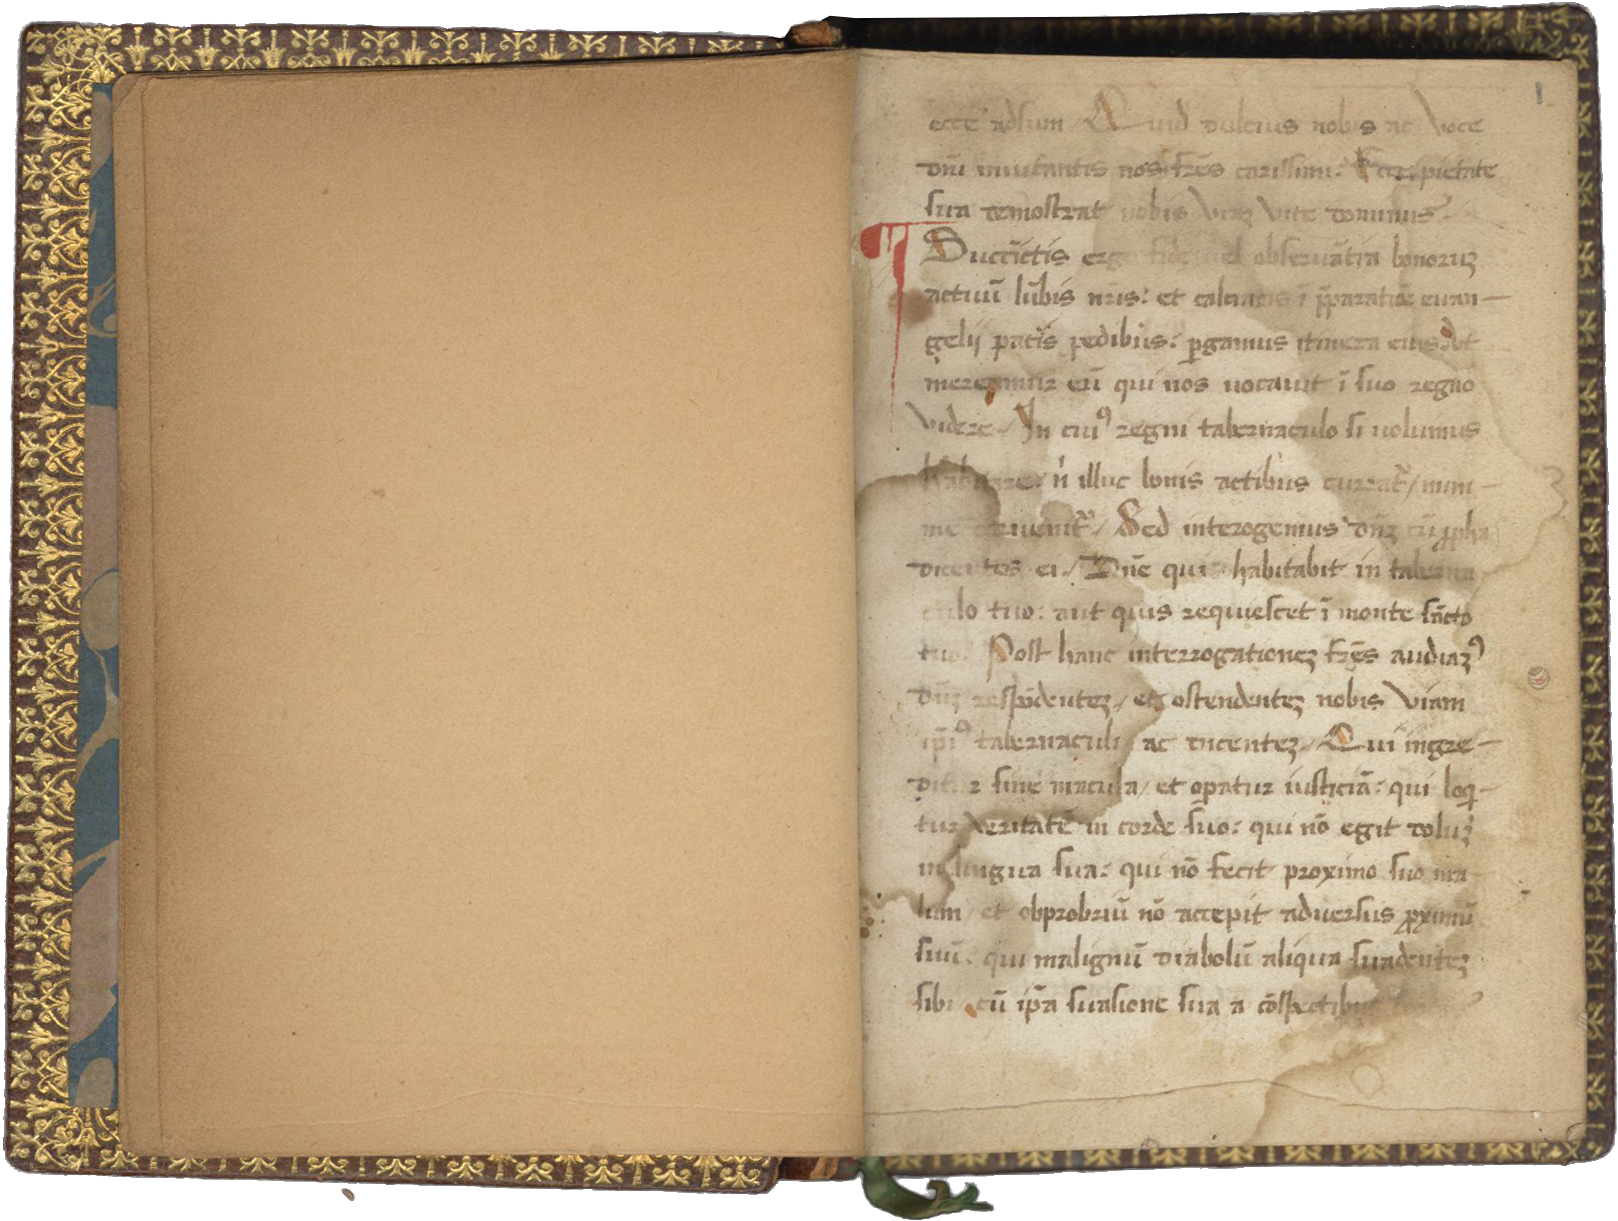 ecce adsum / Quid dulcius nobis ac voce
dn̄i inuitantis nos fr̄es carissimi: Ecce pietate
sua demostrat nobis viaʒ vite dominus.
Succīctis ergo fide uel obseruātia bonoruʒ
actuū lūbis nr̄is: et calciatis ī p̄paratiōe euan-
gelij pacis pedibus: pergamus itinera eius: vt
mereamur eū qui nos uocauit ī suo regno
videre. In cuiꝰ regni tabernaculo si uolumus
habitare: n̄ illuc bonis actibus curratr̄ / mini-
me peruenitr̄ / Sed interogemus dn̄ʒ cū ꝓpha
dicentes ei / Dn̄e quis habitabit in taberna
culo tuo: aut quis requiescet ī monte sāncto
tuo: Post hanc interrogationeʒ fr̄es audiaʒꝰ
dn̄ʒ respōdenteʒ / et ostendenteʒ nobis viam
ip̄iꝰ tabernaculi ac dicenteʒ / Qui ingre-
ditur sine macula / et opatur iusticiā: qui loqi-
tur veritatē in corde suo: qui nō egit doluʒ
in lingua sua: qui nō fecit proximo suo ma
lum / et obprobriū nō accepit aduersus ꝓximū
suū: qui malignū diabolū aliqua suadenteʒ
sibi cū ip̄a suasione sua a cōspectibus
1